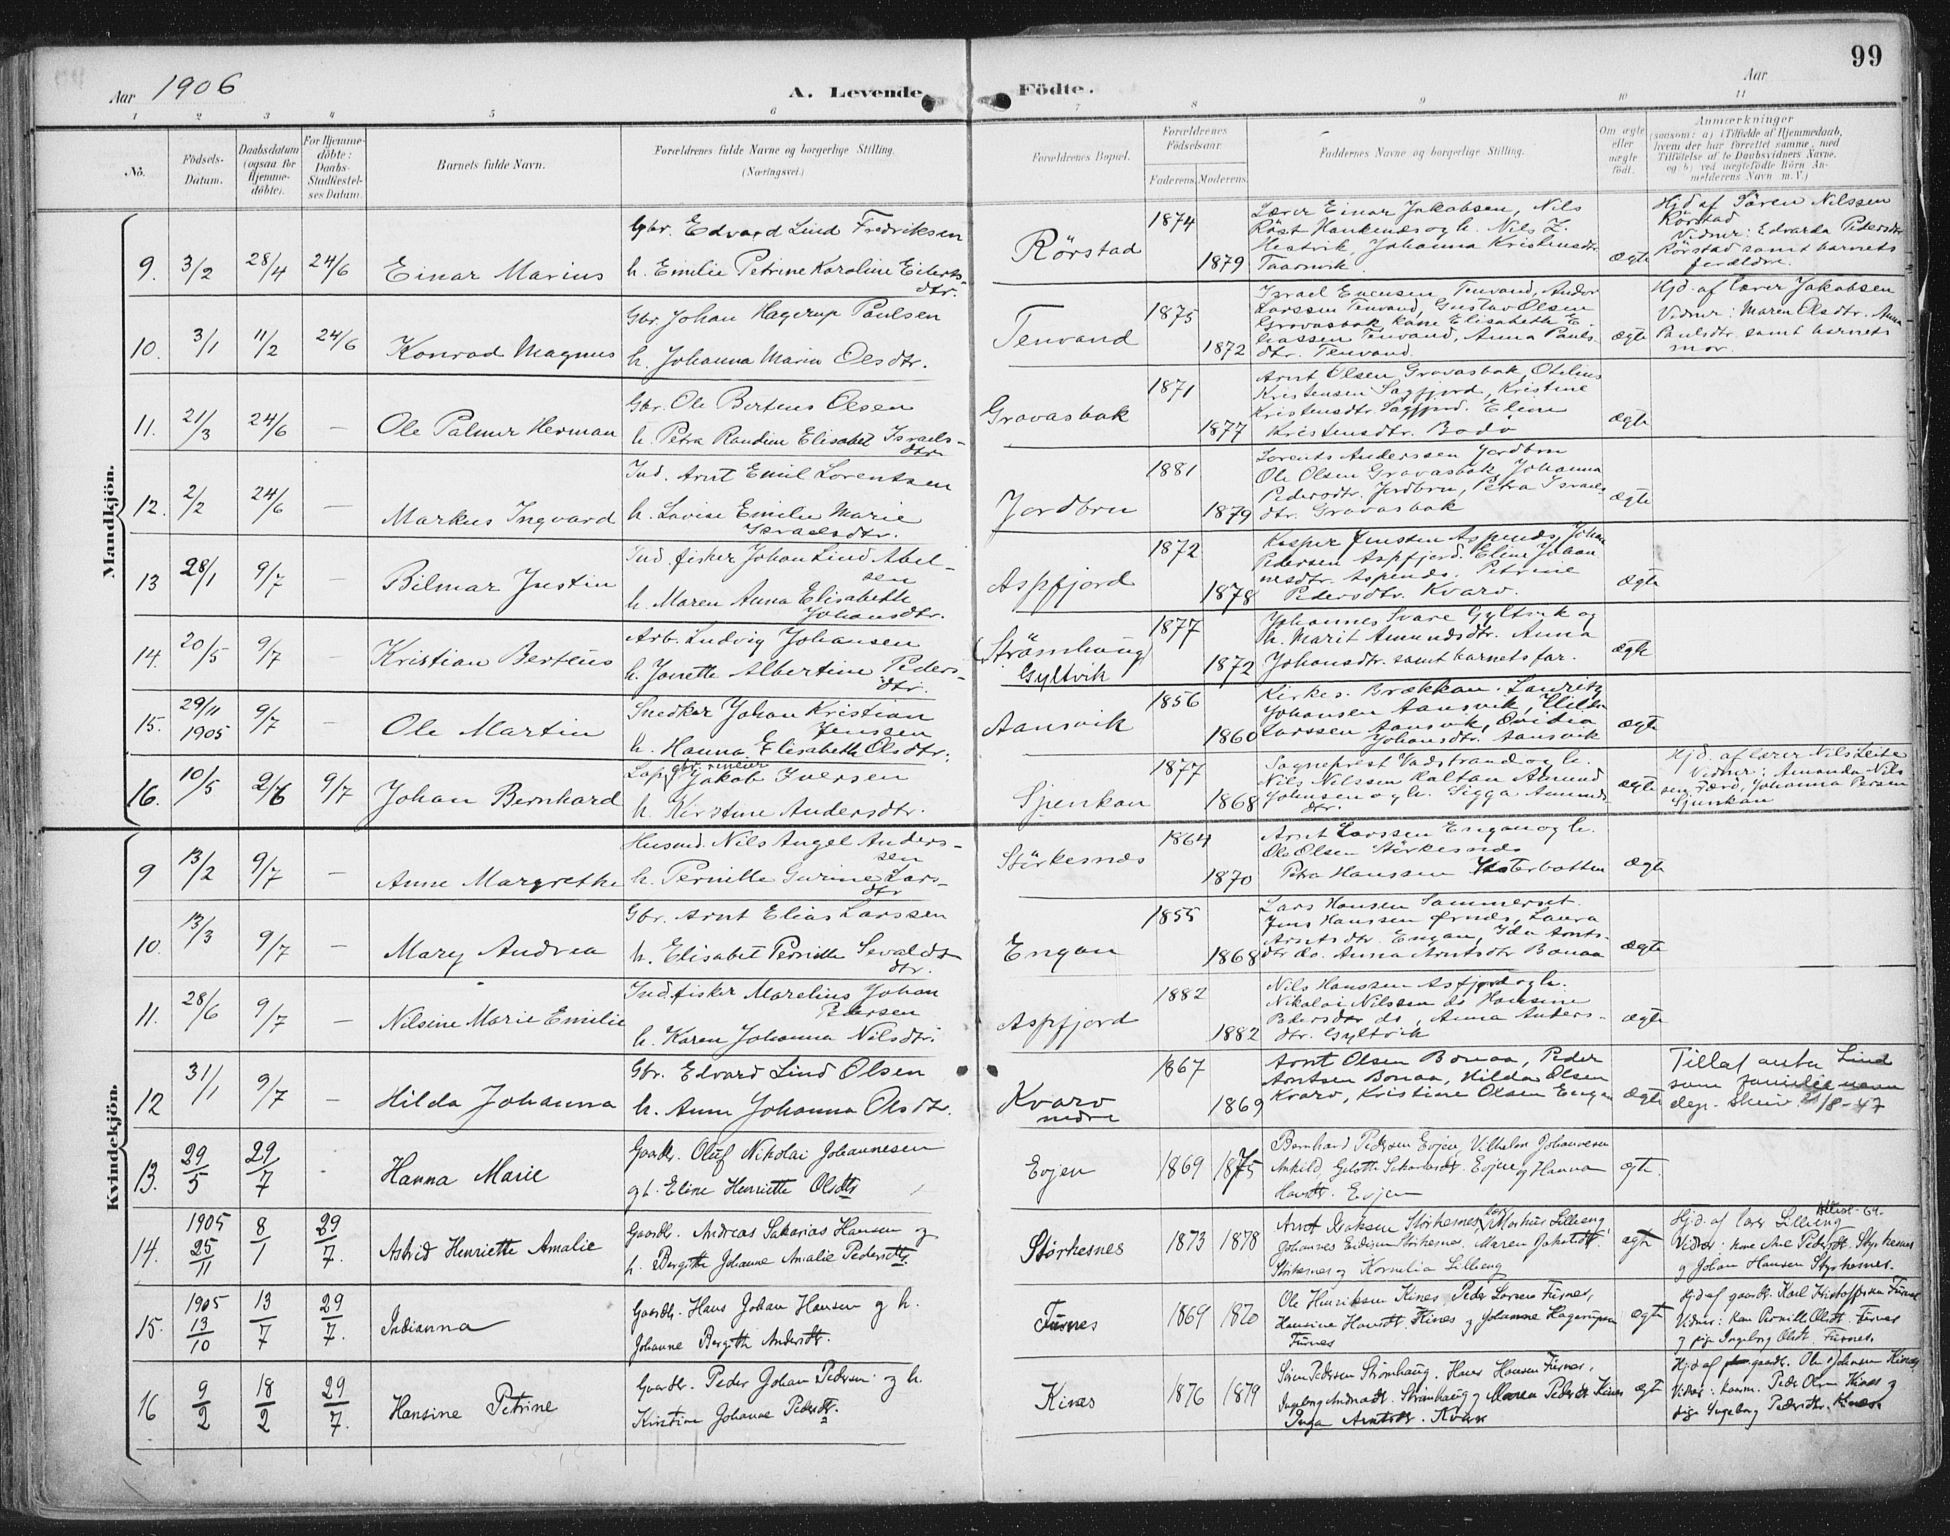 99
Aar 1906
A. Levende
Födte.
Aar
1 2 3 4 5 6 7 8 9 10 11
No.
Födsels-Datum.
Daabsdatum (ogsaa for Hjemme-döbte).
For Hjemme-döbte: Daabs-Stadfæstelses Datum.
Barnets fulde Navn.
Forældrenes fulde Navne og borgerlige Stilling.
(Næringsvei.)
Forældrenes Bopæl.
Forældrenes Födselsaar
Faderens. Moderens.
Faddernes Navne og borgerlige Stilling.
Om ægte eller uægte födt.
Anmærkninger
(saasom: a) i Tilfælde af Hjemmedaab, hvem der har forrettet samme, med Tilföielse af to Daabsvidners Navne, og b) ved uægtefödte Börn Anmelderens Navn m. V.)
Mandkjön.
9. 3/2 28/4 24/6 Einar Marius
Gbr. Edvard Lind Fredriksen
h. Emilie Petrine Karoline Eilerts-
dtr.
Rörstad 1874 1879
Lærer Einar Jakobsen, Nils
Johanna Kristensdtr.
ægte
Hjd af Sören Nilssen
Rörstad
Vidner: Edvarda Pedersdtr
Rörstad samt barnets
forældre.
10. 3/1 11/2 24/6 Konrad Magnus
Gbr. Johan Hagerup Paulsen
h. Johanna Maria Olsdtr.
Tenvand 1875 1872
Israel Evensen Tenvand, Andor
Larssen Tenvand, Gustav Olsen
Gravasbak, Kone Elisabeth E-
liassen Tenvand, Anna Pauls-
dtr. Tenvand.
ægte
Hjd. af lærer Jakobsen
Vidner: Maren Olsdtr. Anna
Paulsdtr samt barnets
mor.
11. 21/3 24/6 — Ole Palmer Herman
Gbr. Ole Berteus Olsen
h. Petra Randine Elisabet Israels-
dtr
Gravasbak 1871 1877
Arnt Olsen Gravasbak, Otelius
Kristensen Sagfjord, Kristine
Kristensdtr. Sagfjord. Eline
Kristensdtr. Bodö
ægte
12. 2/2 24/6 — Markus Ingvard
Ind. Arnt Emil Lorentsen
h. Lovise Emilie Marie
Israelsdtr.
Jordbru 1881 1879
Lorents Anderssen Jordbru
Ole Olsen Gravasbak, Johanna
Pedersdtr. Jordbru, Petra Israels-
dtr. Gravasbak
ægte
13 28/1 9/7 — Bilmar Justin
Ind. fisker Johan Lind Abel-
sen
h. Maren Anna Elisabeth
Johansdtr.
Aspfjord 1872 1878
Kasper Jenssen Aspenes, Johan
Pedersen Aspfjord. Eline Johan-
nesdtr. Aspenes. Petrine
Pedersdtr. Kvarv.
ægte
14. 20/5 9/7 — Kristian Berteus
Arb. Ludvig Johansen
h. Janette Albertine Peders-
dtr.
(Strömhaug)
Gyltvik 1877 1872
Johannes Svare Gyltvik og
h. Marit Amundsdtr. Anna
Johansdtr. samt barnets far.
ægte
15. 29/11 1905 9/7 — Ole Martin
Snedker Johan Kristian
Jenssen
h. Hanna Elisabeth Olsdtr.
Aansvik 1856 1860
Kirkes. Brækkan. Lauritz
Johansen Aansvik, Hilda
Larssen Aansvik, Ovidia
Johansdtr. Aansvik
ægte
16. 10/5 2/6 9/7 Johan Bernhard
Lap, gbr. Jakob Iversen
h. Kirstine Andersdtr.
Sjenkan 1877 1868
Sogneprest Vadstrand og h.
Nils Nilssen Kaltan Amund
Johnsen og h. Sigga Amunds-
dtr.
ægte
Hjd. af lærer Nils Leite
Vidner: Amanda Nils
sen Færö, Johanna Persen
Sjunkan
Kvindekjön.
9 13/2 9/7 — Anne Margrethe
Husmd. Nils Angel Anders-
sen
h. Pernille Gurine Lars-
dtr
Störkesnes 1864 1870
Arnt Larssen Engan og h.
Ole Olsen Störkesnes
Petra Hanssen
ægte
10. 13/3 9/7 — Mary Andrea
Gbr. Arnt Elias Larssen
h. Elisabet Pernille Sevalds-
dtr.
Engan 1855 1868
Lars Hansen Sommerset.
Jens Hanssen Ørnes, Laura
Arntsdtr. Engan, Ida Arnts-
dtr do. Anna Arntsdtr Bonaa
ægte
11. 28/6 9/7 — Nilsine Marie Emilie
Ind. fisker Marelius Johan
Pedersen
h. Karen Johanna Nilsdtr.
Aspfjord 1882 1882
Nils Hanssen Aspfjord og h.
Nikolai Nilssen do Hansine
Pedersdtr do, Anna Anders-
dtr. Gyltvik
ægte
12 31/1 9/7 — Hilda Johanna
Gbr. Edvard Lind Olsen
h. Anne Johanna Olsdtr.
Kvarv
nedre 1867 1869
Arnt Olsen Bonaa, Peder
Arntsen Bonaa, Hilda Olsen
Kvarv, Kristine Olsen Engan
ægte
Tillat anta Lind
som familienavn
dep. skriv. 21/8-47
13. 29/5 29/7 - Hanna Marie
Gaardbr. Oluf Nikolai Johannesen
og h. Eline Henriette Olsdtr
Evjen 1869 1875
Bernhard Pedersen Evjen, Vilhelm Johannesen
Evjen og Hanna
Evjen
ægt.
14. 1905 25/11 8/1 29/7. Astrid Henriette Amalie
Gaardbr. Andreas Sakarias Hansen og
h. Bergitte Johanne Amalie Pedersdtr.
Störkesnes 1873 1878
Arnt Isaksen Störkesnes, Markus Lillieng,
Johannes Störkesnes, Maren
Störkesnes og Kornelia Lillieng
ægt
Hj.d. af lærer Lillieng
og Johan Hansen Styrkesnes.
15. 1905 13/10 13/7 29/7. Indianna
Gaardbr. Hans Johan Hansen og h.
Johanne Bergitte Andersdtr.
Furnes 1869 1870
Ole Henriksen Kines Peder Larsen Furnes,
Hansine Kines og Johanne Hagerupsen
Furnes
ægt
Hjd af gaardbr. Karl Kristoffersen Furnes
Vidner: Kone Pernille Olsdt. Furnes
og pige Ingeborg Olsdt. Furnes
16 9/2 18/2 29/7. Hansine Petrine
Gaardbr. Peder Johan Pedersen og h.
Kirstine Johanne Pedersdtr.
Kines 1876 1879
Sören Pedersen Strömhaug. Hans Hansen Furnes,
Ingeborg Andreasdt. Strömhaug og Maren Pedersdt Kines
Inga Arntsdtr. Kvarv
ægt
Hjd af gaardbr. Ole Johnsen Kines
Vidner: Peder Olsen Kines og
pige Ingeborg Pedersdtr. Kines